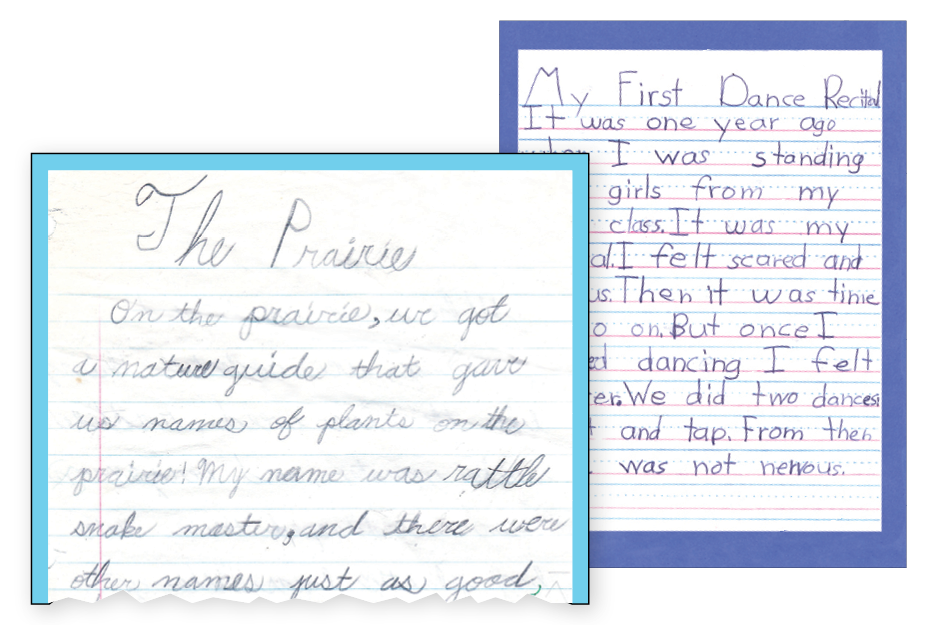 The Prairie
On the prairie, we got
a nature guide that gave
us names of plants on the
prairie! My name was rattle
snake master, and there were
other names just as good,
My First Dance Recital
It was one year ago
I was standing
girls from my
class. It was my
I felt scared and
Then it was time
on. But once I
dancing I felt
We did two dances:
and tap. From then
was not nervous.